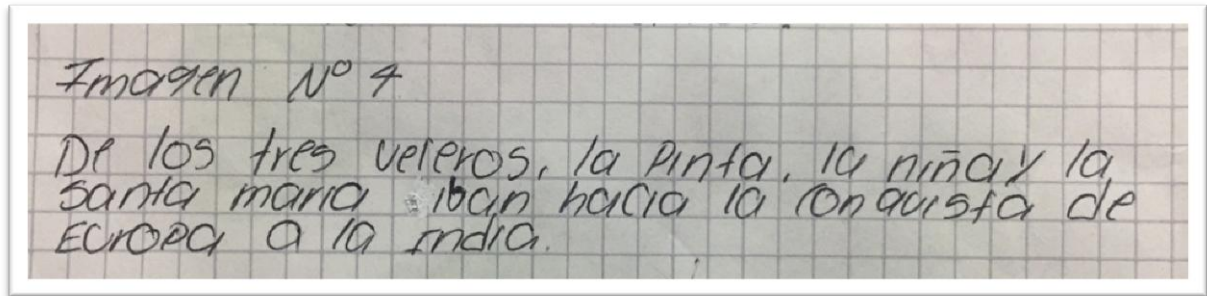 Imagen Nº 4
De los tres veleros, la Pinta, la niña y la
santa maria iban hacia la conquista de
Europa a la India.